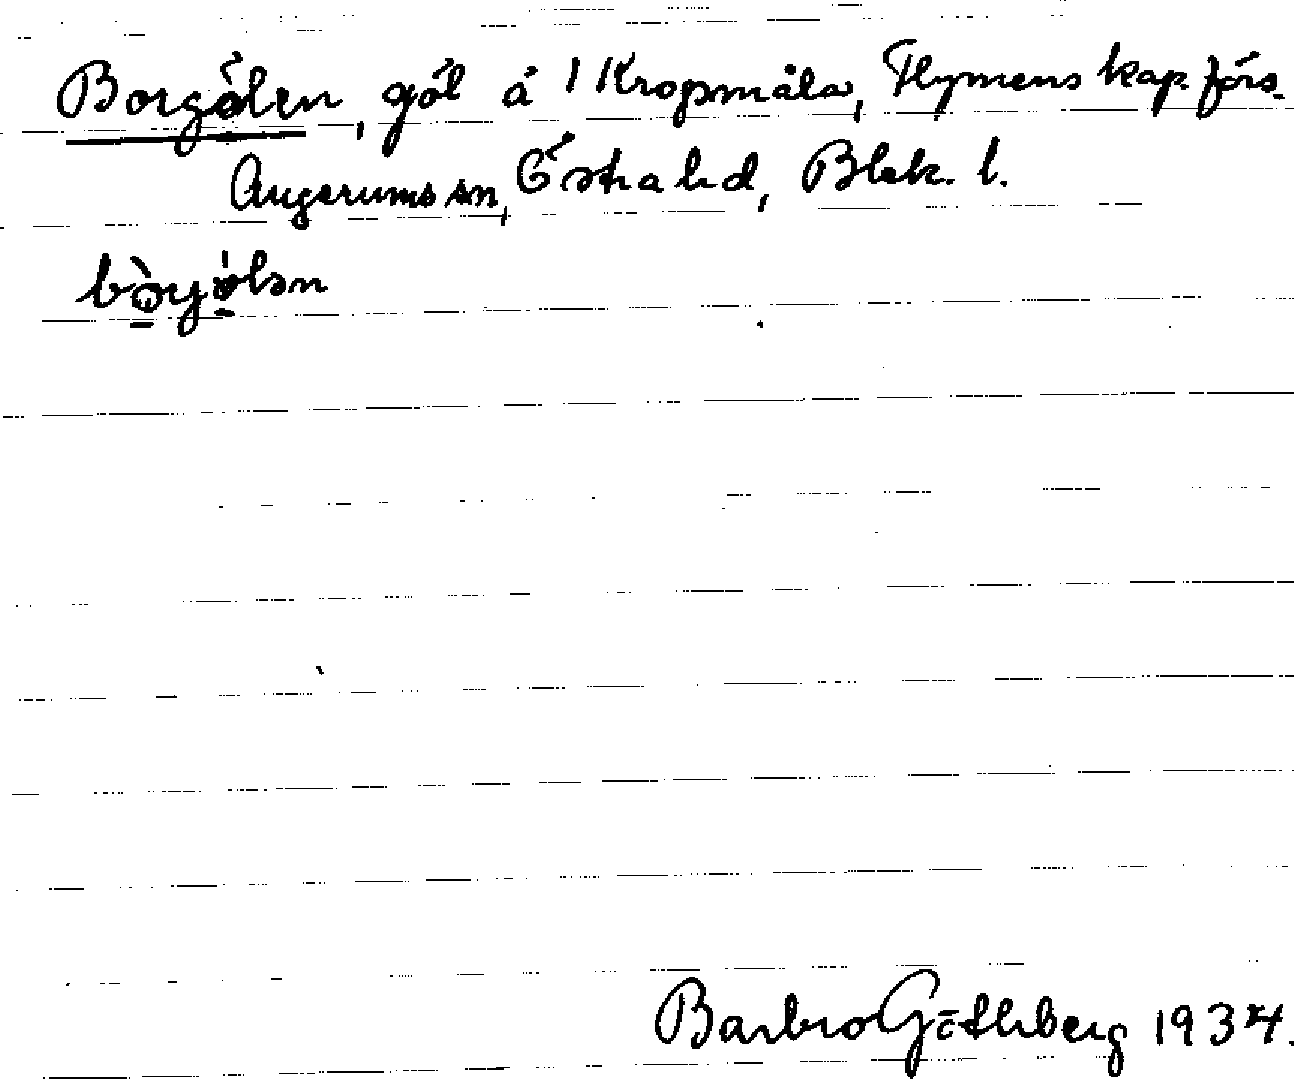 Borgölen, göl å 1 Kropsmåla, Flymens kap.förs.
Augerums sn, Östra hd, Blek. l.
bòrgölən
Barbro Götherberg 1934.